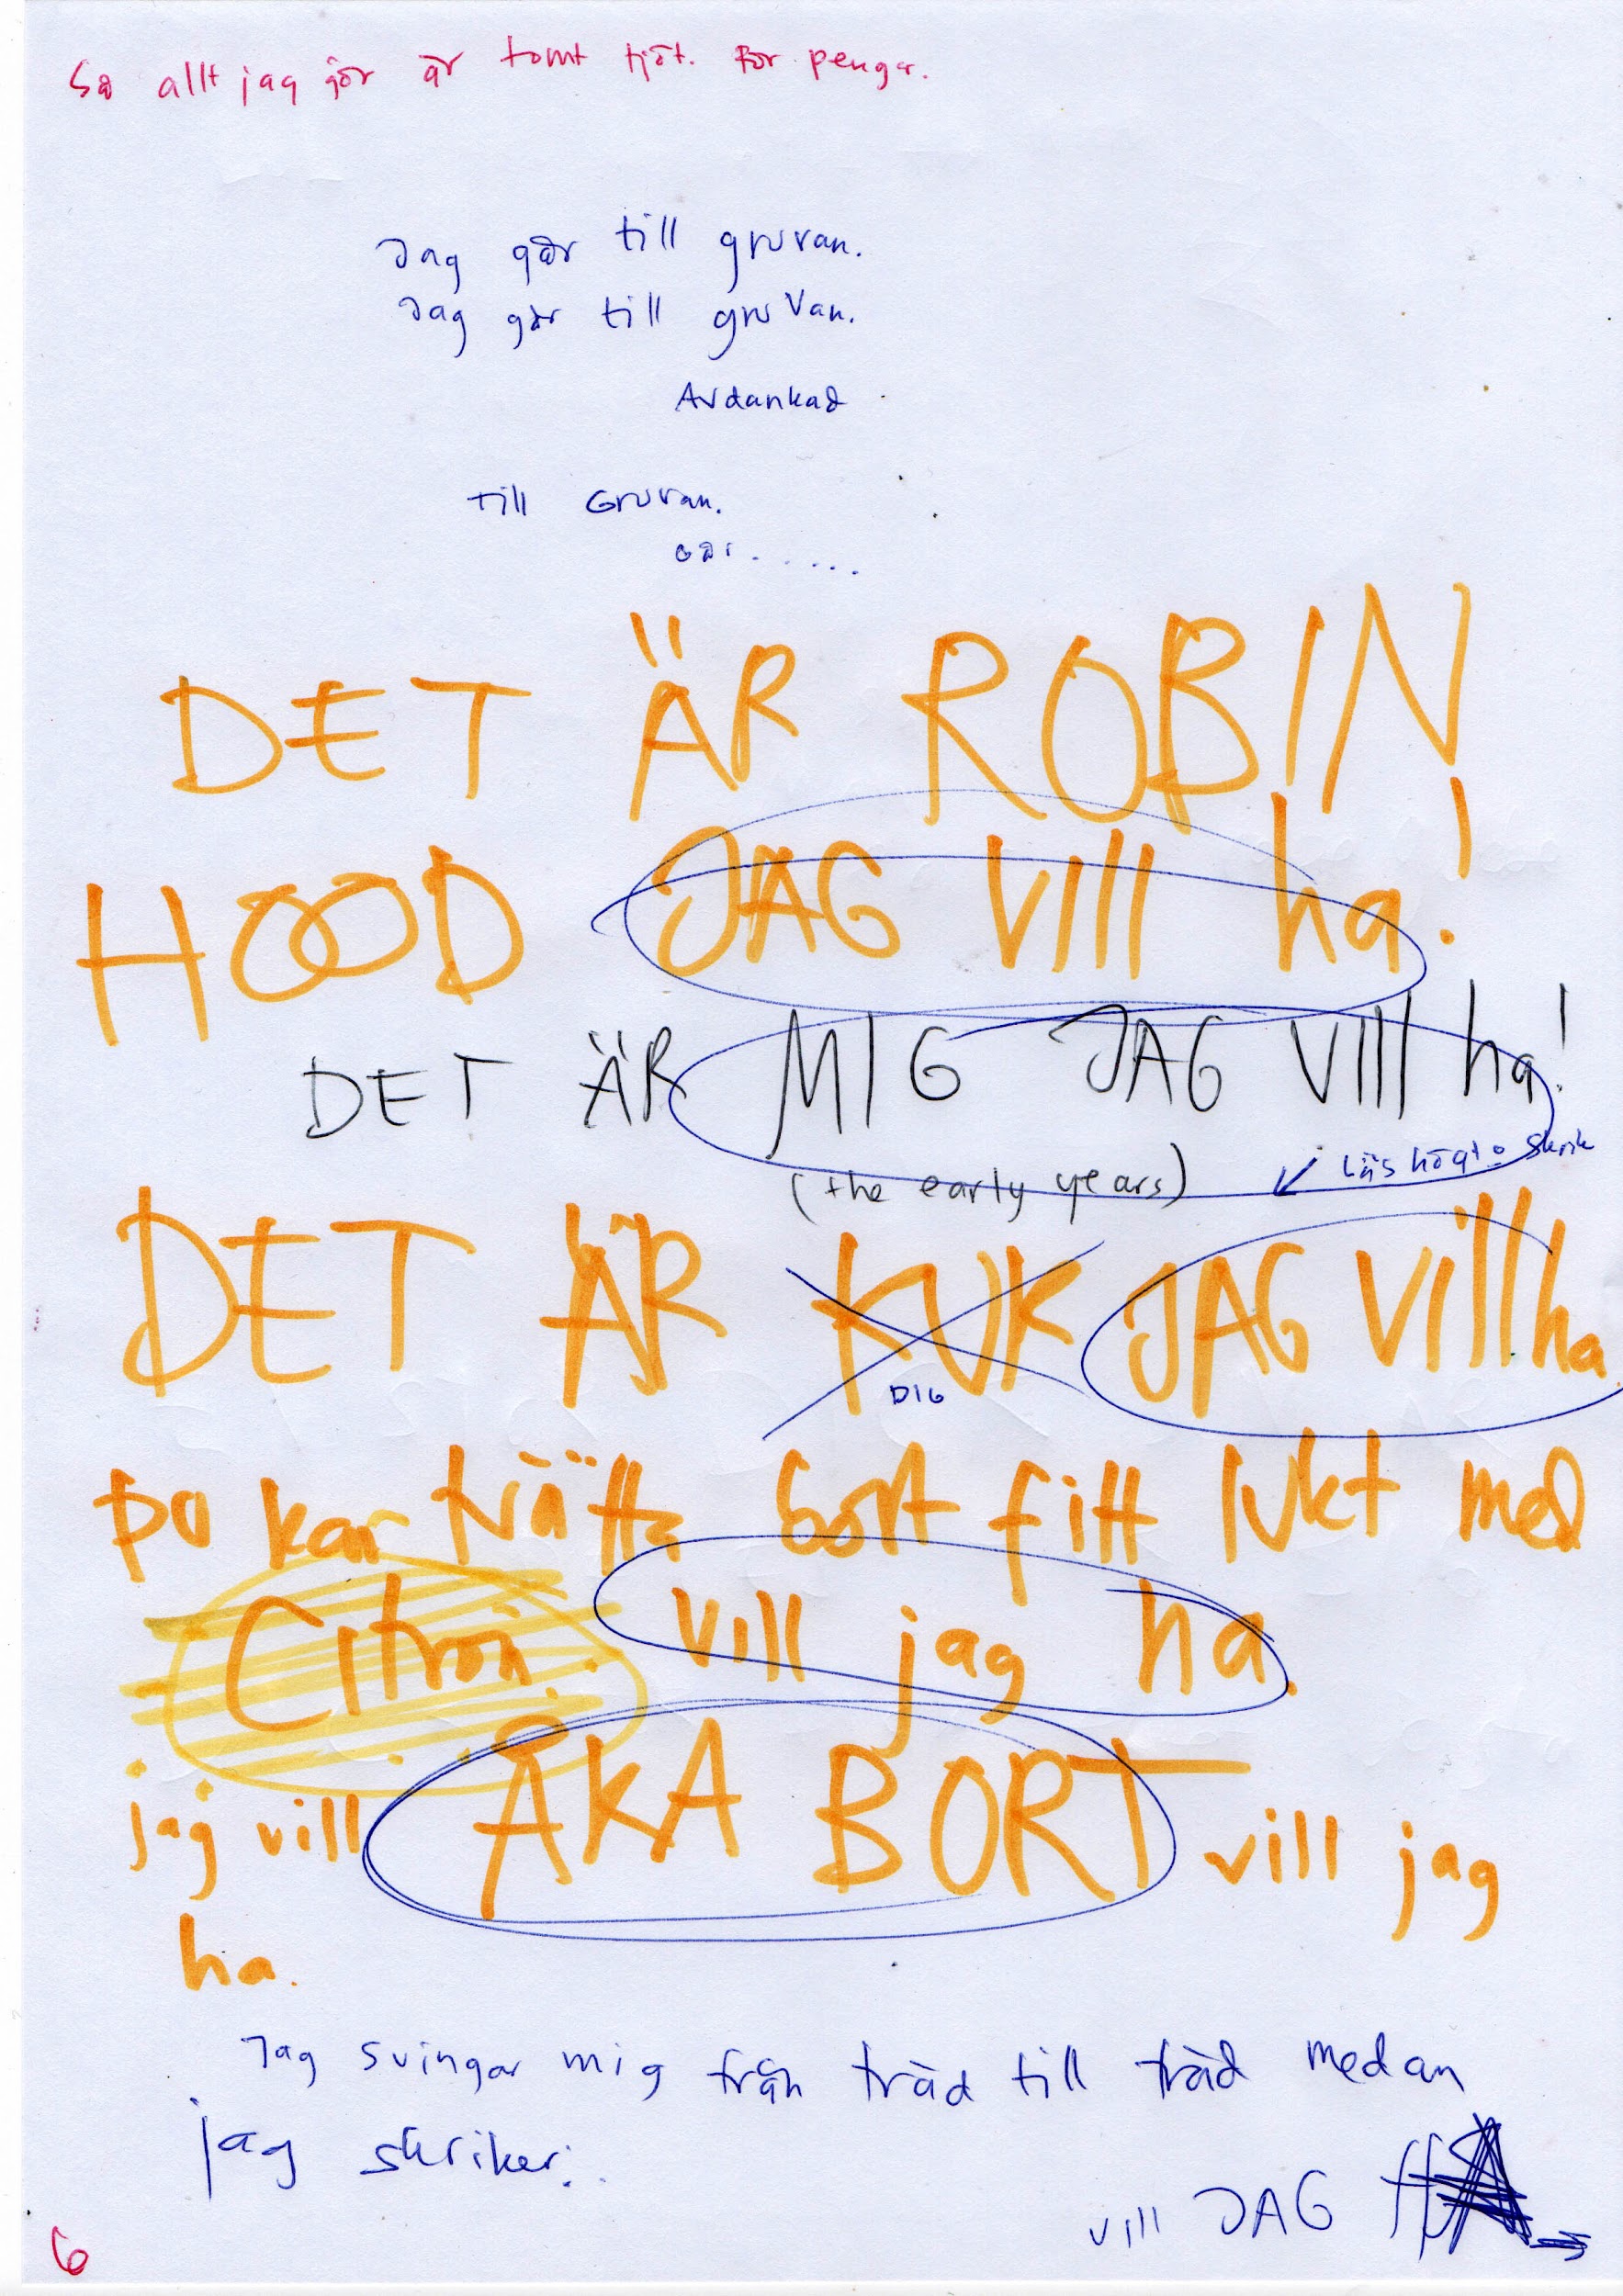 Så allt jag gör är tomt tjöt. För pengar.
Jag går till gruvan.
Jag går till gruvan.
Avdankad
Till Gruvan.
Går.....
DET ÄR ROBIN
HOOD JAG Vill ha!
DET ÄR MIG JAG VIll ha!
(the early years)
Läs högt o skrik
DET ÄR KUK JAG Vill ha.
DIG
DU kan tvätta bort fitt lukt med
Citron. vill jag ha.
jag vill ÅKA BORT vill jag
ha.
Jag svingar mig från träd till träd medan
jag skriker:..
vill JAG HA
6